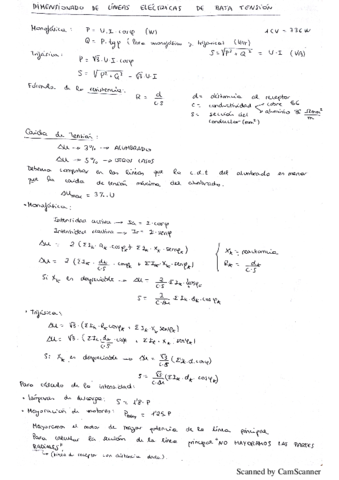 DIMENSIONADO DE LÍNEAS ELÉCTRICAS DE BAJA TENSIÓN
Monofásica: P = U · I cosφ (W) 1CV = 736W
Q = P · tgφ (Para monofásica y trifásica) (VAr) S = √P² + Q² = U · I (VA)
Trifásica: P = √3 · U · I cosφ
S = √P² + Q² = √3 U · I
Fórmula de la resistencia: R = d / C·S
d = distancia al receptor
C = conductividad cobre 56
aluminio
S = sección del
conductor (mm²)
Caída de Tensión:
Δu → 3% → ALUMBRADO
Δu → 5% → OTROS CASOS
Debemos comprobar en las líneas que la c.d.t del alumbrado es menor
que la caída de tensión máxima del alumbrado.
Δu max = 3% U
• Monofásica:
Intensidad activa → Ia = I · cosφ
Intensidad reactiva → Ir = I · senφ
Δu = 2 (ΣIk · Rk · cosφk + ΣIk · Xk · senφk)
Xk = reactancia
Δu = 2 (ΣIk · dk/C·S · cosφk + ΣIk · Xk · senφk)
Rk = dk/C·S
Si Xk es despreciable → Δu = 2/C·S ΣIk · dk cosφk
S = 2/C·Δu ΣIk · dk cosφk
• Trifásica:
Δu = √3 (ΣIk · Rk cosφk + ΣIk · Xk senφk)
Δu = √3 · (ΣIk dk/C·S cosφ + ΣIk · Xk · senφk)
Si Xk es despreciable → Δu = √3/C·S (ΣIk · d · cosφ)
S = √3/C·Δu (ΣIk · dk · cosφk)
Para cálculo de la intensidad:
• Lámparas de descarga: S = 1'8 · P
• Mayoración de motores: P = 1'25 · P
Mayoramos el motor de mayor potencia de la línea principal
Para calcular la sección de la línea principal "NO MAYORAMOS LAS PARTES
RADIALES"
Scanned by CamScanner